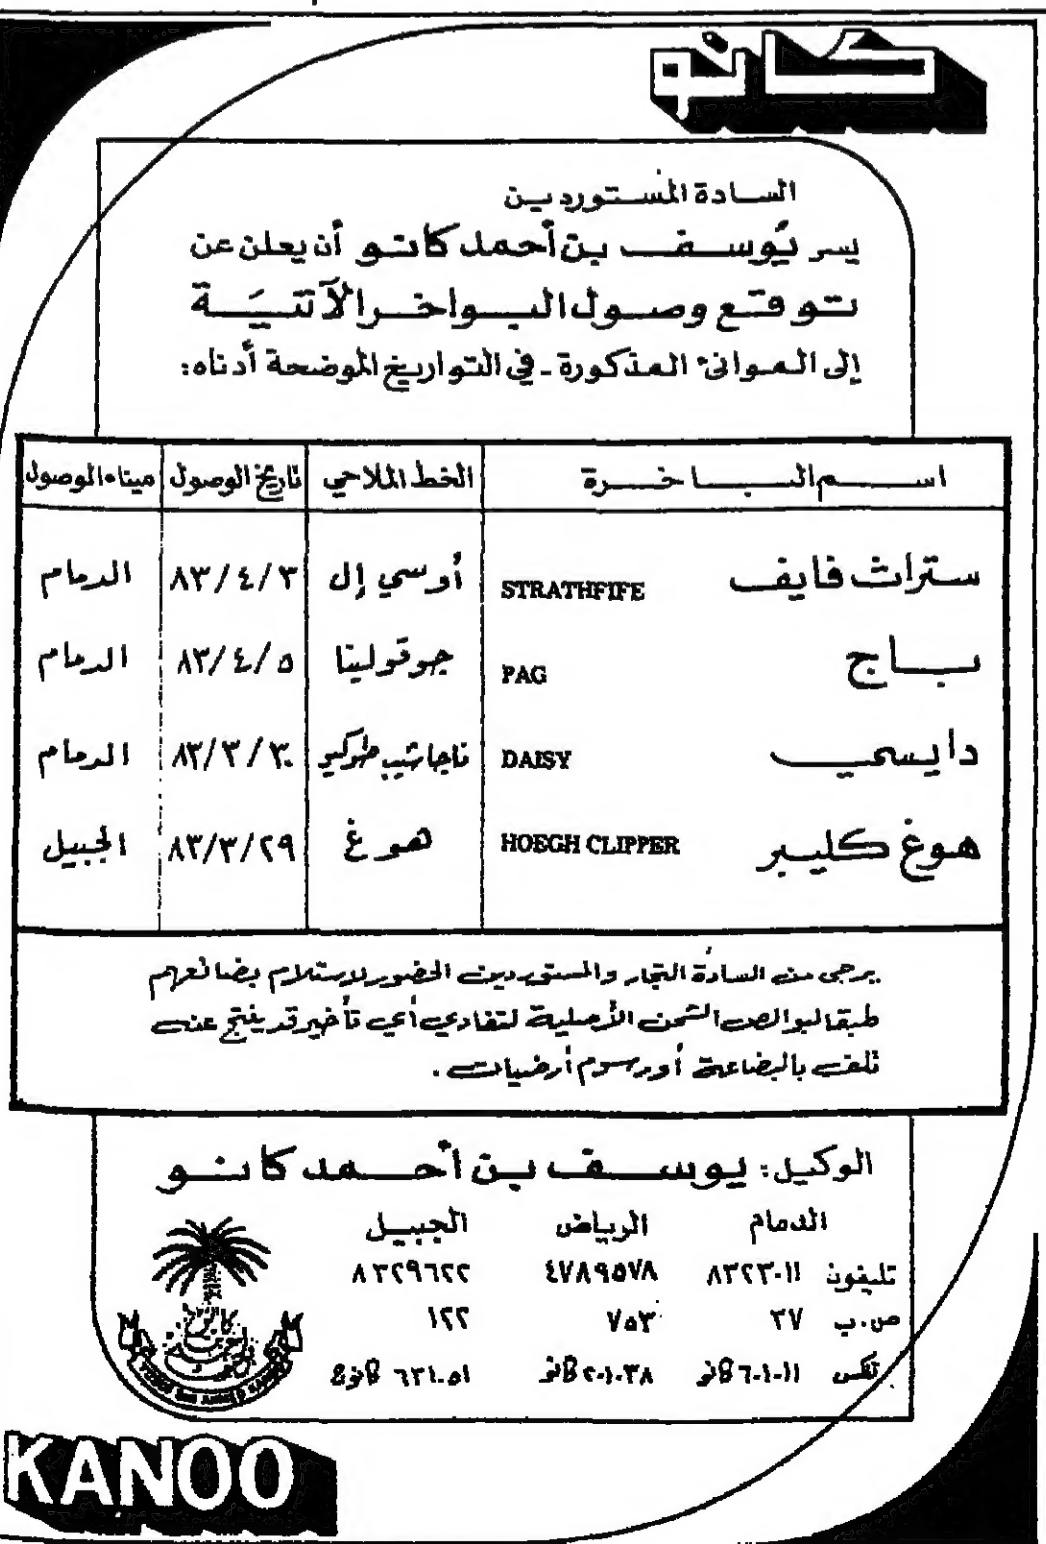 كانو
السادة المستوردين
يسر يوسف بن أحمد كانو أن يعلن عن
توقع وصول البواخر الآتية
إلى الموانئ المذكورة ـ في التواريخ الموضحة أدناه:
اسم الباخرة الخط الملاحي تاريخ الوصول ميناء الوصول
ستراث فايف STRATHFIFE أوسي إل ٨٣/٤/٣ الدمام
باج PAG جوقولينا ٨٣/٤/٥ الدمام
دايسي DAISY ناجاشيب طوكيو ٨٣/٣/٣٠ الدمام
هوغ كليبر HOEGH CLIPPER هوغ ٨٣/٣/٢٩ الجبيل
يرجى من السادة التجار والمستوردين الحضور لاستلام بضائعهم
طبقا لبوالص الشحن الأصلية لتفادي أي تأخير قد ينتج عنه
تلف بالبضاعة أو رسوم أرضيات .
الوكيل: يوسف بن أحمد كانو
الدمام الرياض الجبيل
تليفون ٨٣٢٣٠١١ ٤٧٨٩٥٧٨ ٨٣٢٩٦٢٢
ص.ب ٣٧ ٧٥٣ ١٢٢
تلكس ٦٠١٠١١ كانو ٢٠١٠٣٨ كانو ٦٣١٠٥١ كانو
YUSUF BIN AHMED KANOO
KANOO